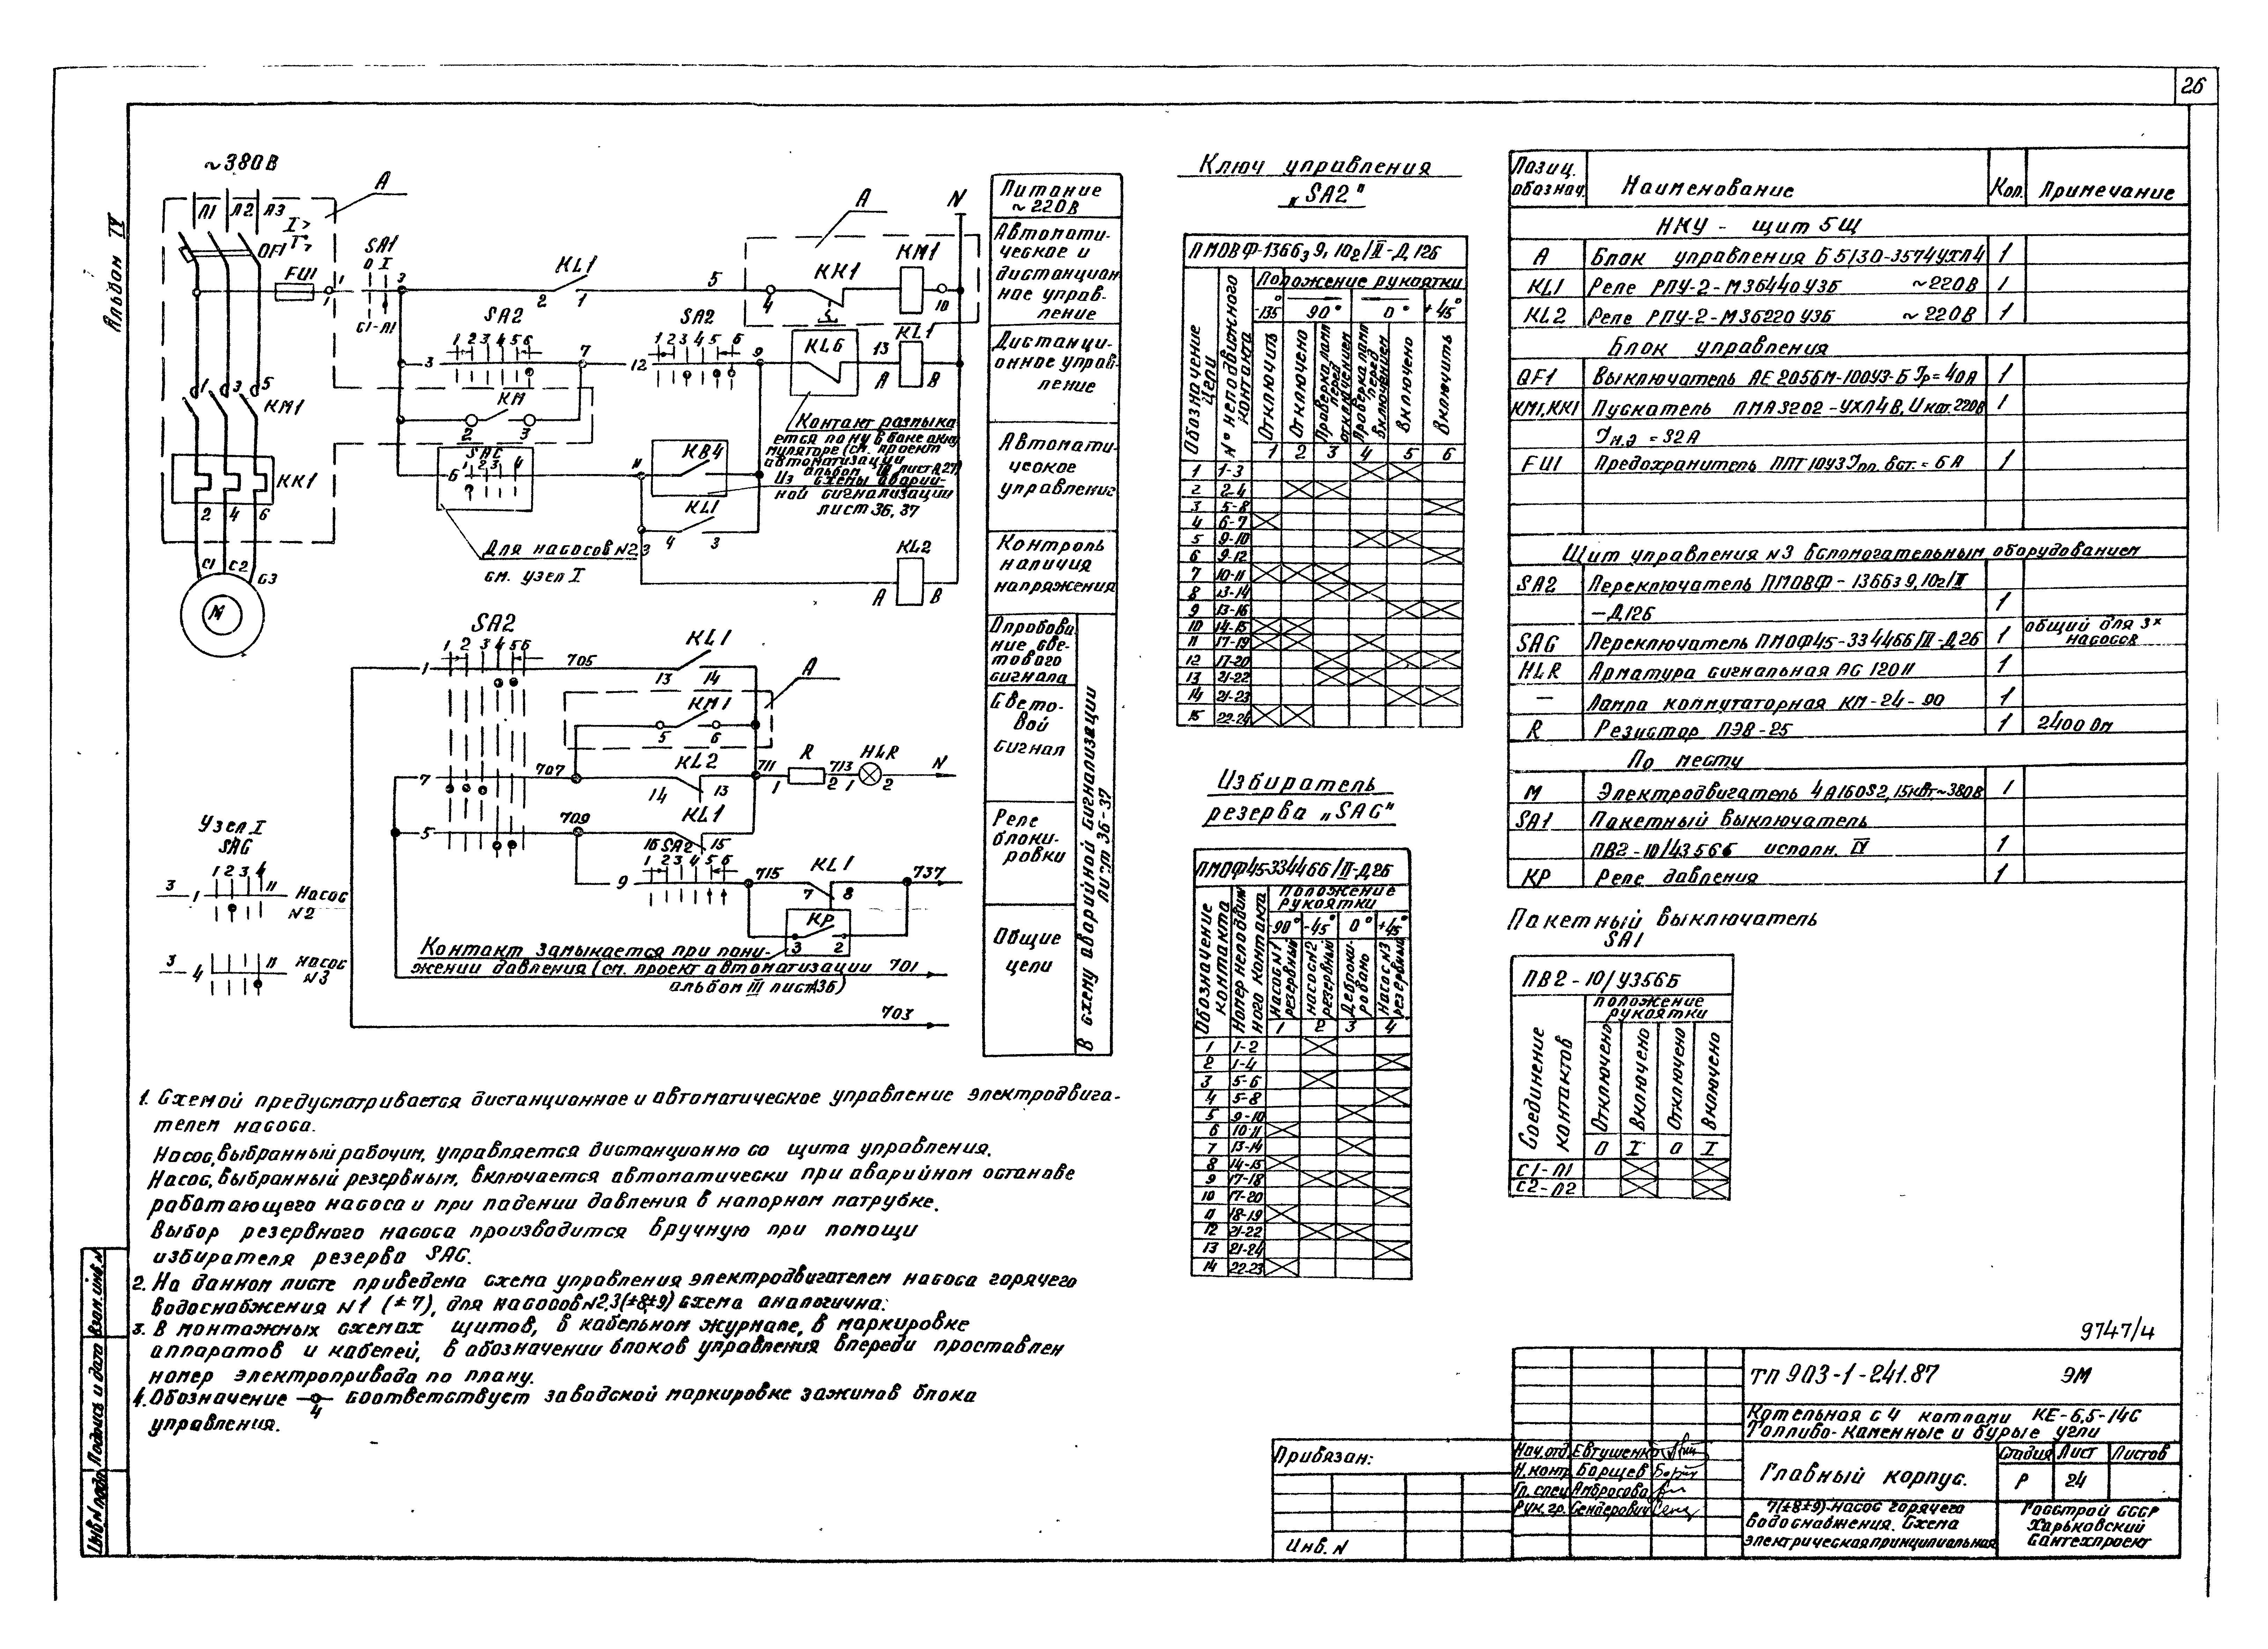 26
Альбом IV
~380В
А
Л1 Л2 Л3
QF1
FU1
SA1
0 I
С1-Л1
KL1
KK1
KM1
N
SA2
1 2 3 4 5 6
SA2
1 2 3 4 5 6
KL6
KL1
KM
Контакт размыка-
ется по ну в баке акку
муляторе (см. проект
автоматизации
Из схемы аварий-
ной сигнализации
лист 36, 37
SAG
KB4
KL1
KL2
Для насосов N2,3
см. узел I
KM1
KK1
C1 C2 C3
М
Питание
~220В
Автомати-
ческое и
дистанцион
ное управ-
ление
Дистанци-
онное управ-
ление
Автомати-
ческое
управление
Контроль
наличия
напряжения
Опробова
ние све-
тового
сигнала
Свето-
вой
сигнал
Реле
блоки-
ровки
Общие
цепи
В схему аварийной сигнализации
Лист 36-37
SA2
1 2 3 4 5 6
705
KL1
13 14
А
KM1
5 6
707
KL2
14 13
711
R
713
HLR
N
709
KL1
16 15
SA2
715
KL1
7 8
737
KP
3 2
Контакт замыкается при пони-
жении давления (см. проект автоматизации
альбом III лист А36)
701
703
Узел I
SAG
1 2 3 4
3 1 11 Насос
N2
3 4 11 Насос
N3
1. Схемой предусматривается дистанционное и автоматическое управление электродвига-
телем насоса.
Насос, выбранный рабочим, управляется дистанционно со щита управления.
Насос, выбранный резервным, включается автоматически при аварийном останове
работающего насоса и при падении давления в напорном патрубке.
Выбор резервного насоса производится вручную при помощи
избирателя резерва SAG.
2. На данном листе приведена схема управления электродвигателем насоса горячего
водоснабжения N1 (±7), для насосов N2,3 (±8±9) схема аналогична.
3. В монтажных схемах щитов, в кабельном журнале, в маркировке
аппаратов и кабелей, в обозначении блоков управления впереди проставлен
номер электропривода по плану.
4. Обозначение 4 соответствует заводской маркировке зажимов блока
управления.
Ключ управления
„SA2"
ПМОВФ-1366з 9, 10г/II-Д126
Обозначение цепи
N° неподвижного контакта
Положение рукоятки
-135° 90° 0° +45°
Отключить
Отключено
Проверка ламп перед отключением
Проверка ламп перед включением
Включено
Включить
1 2 3 4 5 6
1 1-3
2 2-4
3 5-8
4 6-7
5 9-10
6 9-12
7 10-11
8 13-14
9 13-16
10 14-15
11 17-19
12 17-20
13 21-22
14 21-23
15 22-24
Избиратель
резерва „SAG"
ПМОФ45-334466/II-Д26
Обозначение контакта
Номер неподвиж ного контакта
Положение
рукоятки
-90° -45° 0° +45°
Насос N1 резервный
Насос N2 резервный
Деблоки-ровано
Насос N3 резервный
1 2 3 4
1 1-2
2 1-4
3 5-6
4 5-8
5 9-10
6 10-11
7 13-14
8 14-15
9 17-18
10 17-20
11 18-19
12 21-22
13 21-24
14 22-23
Позиц. обознач.
Наименование
Кол.
Примечание
НКУ - щит 5Щ
А Блок управления Б5130-3574УХЛ4 1
KL1 Реле РПУ-2-М36440У3Б ~220В 1
KL2 Реле РПУ-2-М36220У3Б ~220В 1
Блок управления
QF1 Выключатель АЕ 2056М-100У3-Б Iр=40А 1
KM1, KK1 Пускатель ПМА3202-УХЛ4В, Uкат. 220В 1
Iн.э = 32А
FU1 Предохранитель ППТ10У3 Iпл. вст. = 6А 1
Щит управления N3 вспомогательным оборудованием
SA2 Переключатель ПМОВФ-1366з 9,10г/II
-Д126 1
SAG Переключатель ПМОФ45-334466/II-Д26 1 общий для 3х насосов
HLR Арматура сигнальная АС 12011 1
— Лампа коммутаторная КМ-24-90 1
R Резистор ПЭВ-25 1 2400 Ом
По месту
М Электродвигатель 4А160S2, 15кВт, ~380В 1
SA1 Пакетный выключатель
ПВ2-10/43 56Б исполн. IV 1
KP Реле давления 1
Пакетный выключатель
SA1
ПВ2-10/У356Б
Соединение контактов
Положение
рукоятки
Отключено
Включено
Отключено
Включено
0 I 0 I
С1-Л1
С2-Л2
9747/4
ТП 903-1-241.87 ЭМ
Котельная с 4 котлами КЕ-6,5-14С
Топливо-каменные и бурые угли
Главный корпус.
Стадия Лист Листов
Р 24
7(±8±9)-Насос горячего
водоснабжения. Схема
электрическая принципиальная
Госстрой СССР
Харьковский
Сантехпроект
Нач. отд. Евтушенко
Н. конт. Борщев
Гл. спец. Амбросова
Рук. гр. Сендерович
Привязан:
Инв. N
Взам. инв. N
Подпись и дата
Инв. N подл.